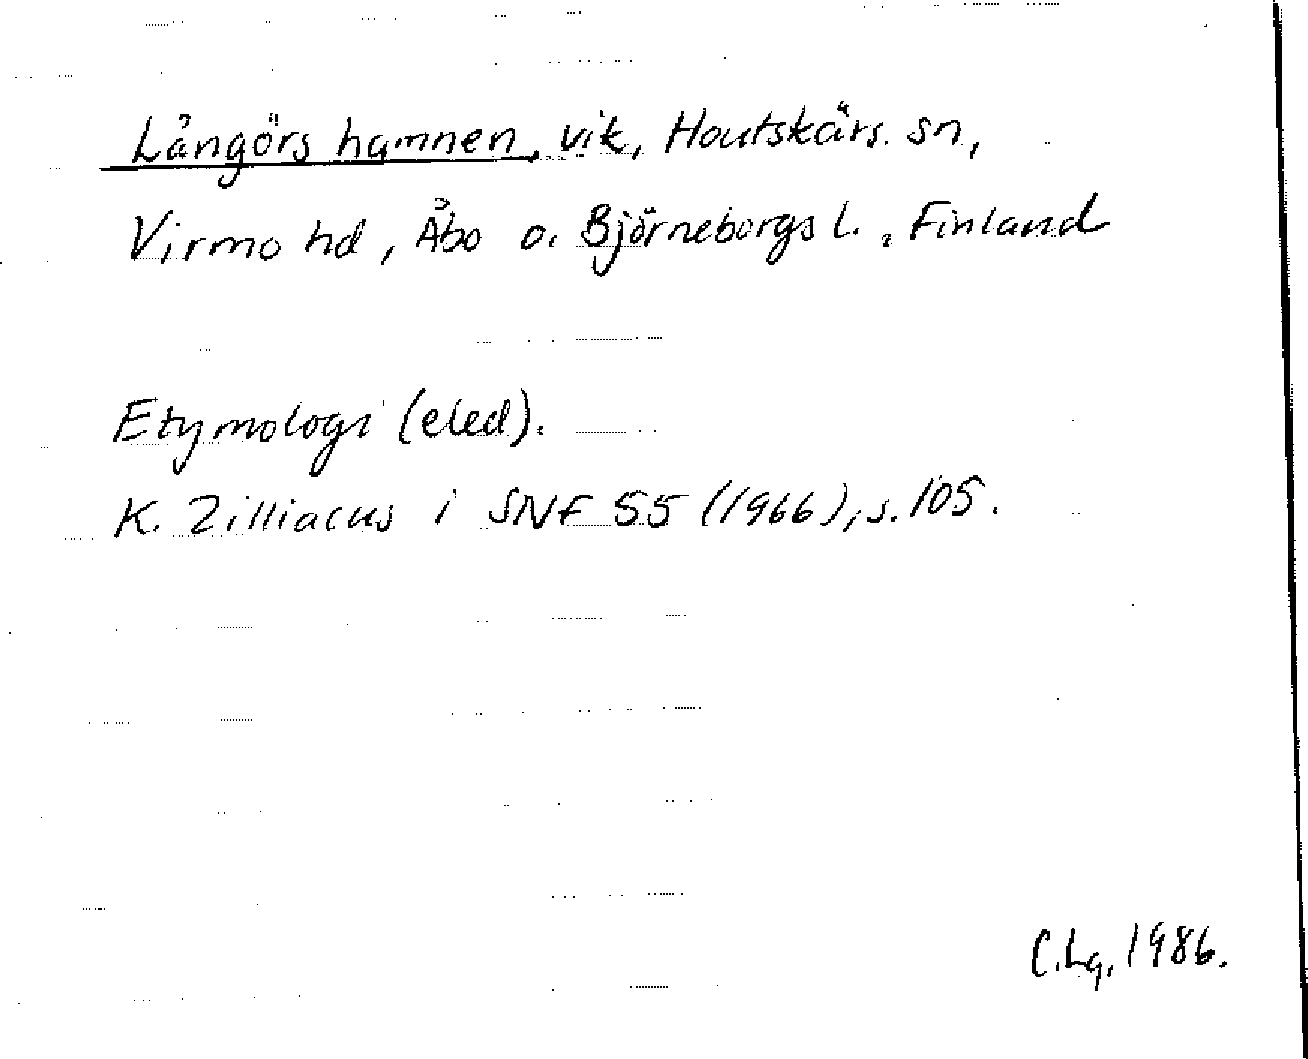 Långörs hamnen, vik, Houtskärs sn,
Virmo hd, Åbo o. Björneborgs l., Finland
Etymologi (eled).
K. Zilliacus i SNF 55 (1966), s. 105.
C.Lg. 1986.